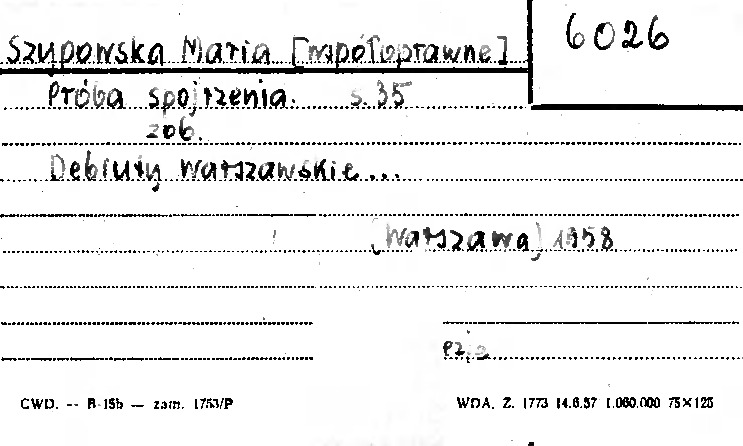 Szypowska Maria [współoprawne] 6026
Próba spojrzenia. s. 35
zob.
Debiuty Warszawskie...
[Warszawa] 1958
CWD. -- B-15b — zam. 1753/P
WDA. Z. 1773 14.6.57 1.000.000 75×125